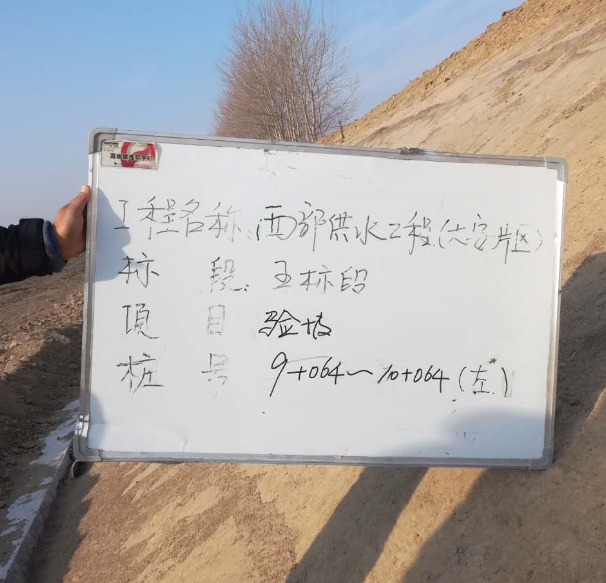 工程名称:西部供水工程(大安片区)
标 段:五标段
項 目 验坡
桩 号 9+064~10+064(左)